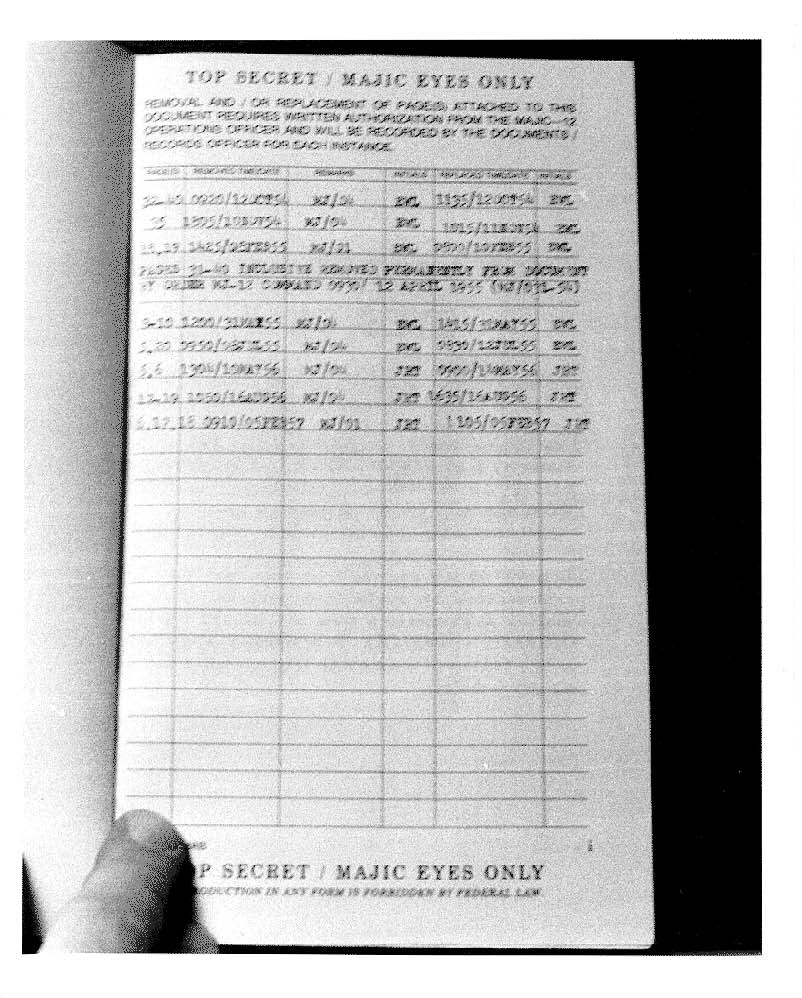 TOP SECRET / MAJIC EYES ONLY
REMOVAL AND / OR REPLACEMENT OF PAGE(S) ATTACHED TO THIS
DOCUMENT REQUIRES WRITTEN AUTHORIZATION FROM THE MAJIC—12
OPERATIONS OFFICER AND WILL BE RECORDED BY THE DOCUMENTS /
RECORDS OFFICER FOR EACH INSTANCE.
REMOVED TIME/DATE REMARKS INITIALS REPLACED TIME/DATE INITIALS
0920/12OCT54 MJ/04 EWL 1135/12OCT54 EWL
35 1805/10NOV54 MJ/04 EWL 1015/11NOV54 EWL
18,19 1425/06FEB55 MJ/01 EWL 0800/10FEB55 EWL
PAGES 31-40 INCLUSIVE REMOVED PERMANENTLY FROM DOCUMENT
BY ORDER MJ-12 COMMAND 0930/ 12 APRIL 1955
1200/31MAY55 MJ/04 EWL 1415/31MAY55 EWL
MJ/04 EWL EWL
5,6 MJ/04 JRT JRT
MJ/04 JRT 1635/16AUG56 JRT
0910/05FEB57 MJ/01 JRT 1105/05FEB57 JRT
i
P SECRET / MAJIC EYES ONLY
RODUCTION IN ANY FORM IS FORBIDDEN BY FEDERAL LAW